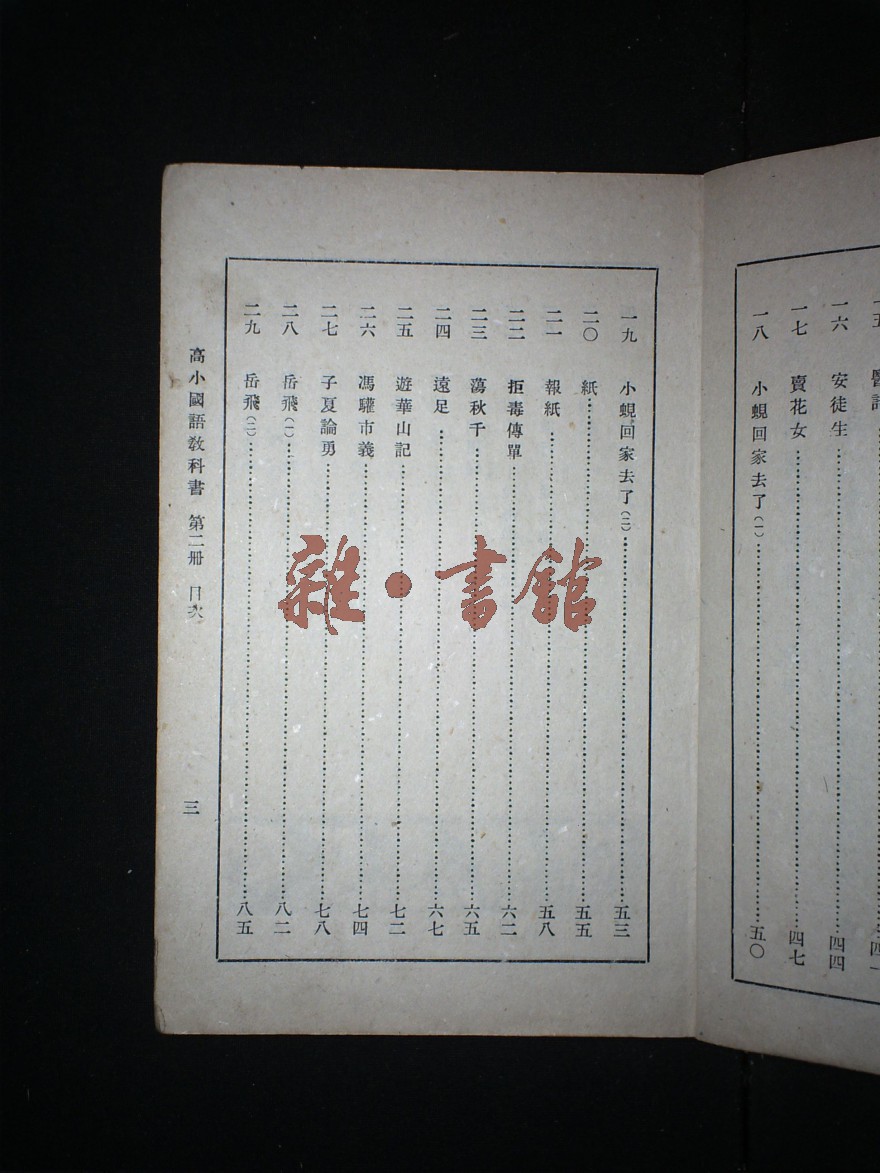 一六 安徒生 四四
一七 賣花女 四七
一八 小蜆回家去了(一) 五〇
一九 小蜆回家去了(二) 五三
二〇 紙 五五
二一 報紙 五八
二二 拒毒傳單 六二
二三 蕩秋千 六五
二四 遠足 六七
二五 遊華山記 七二
二六 馮驩市義 七四
二七 子夏論勇 七八
二八 岳飛(一) 八二
二九 岳飛(二) 八五
高小國語教科書 第二册 目次 三
雜·書館